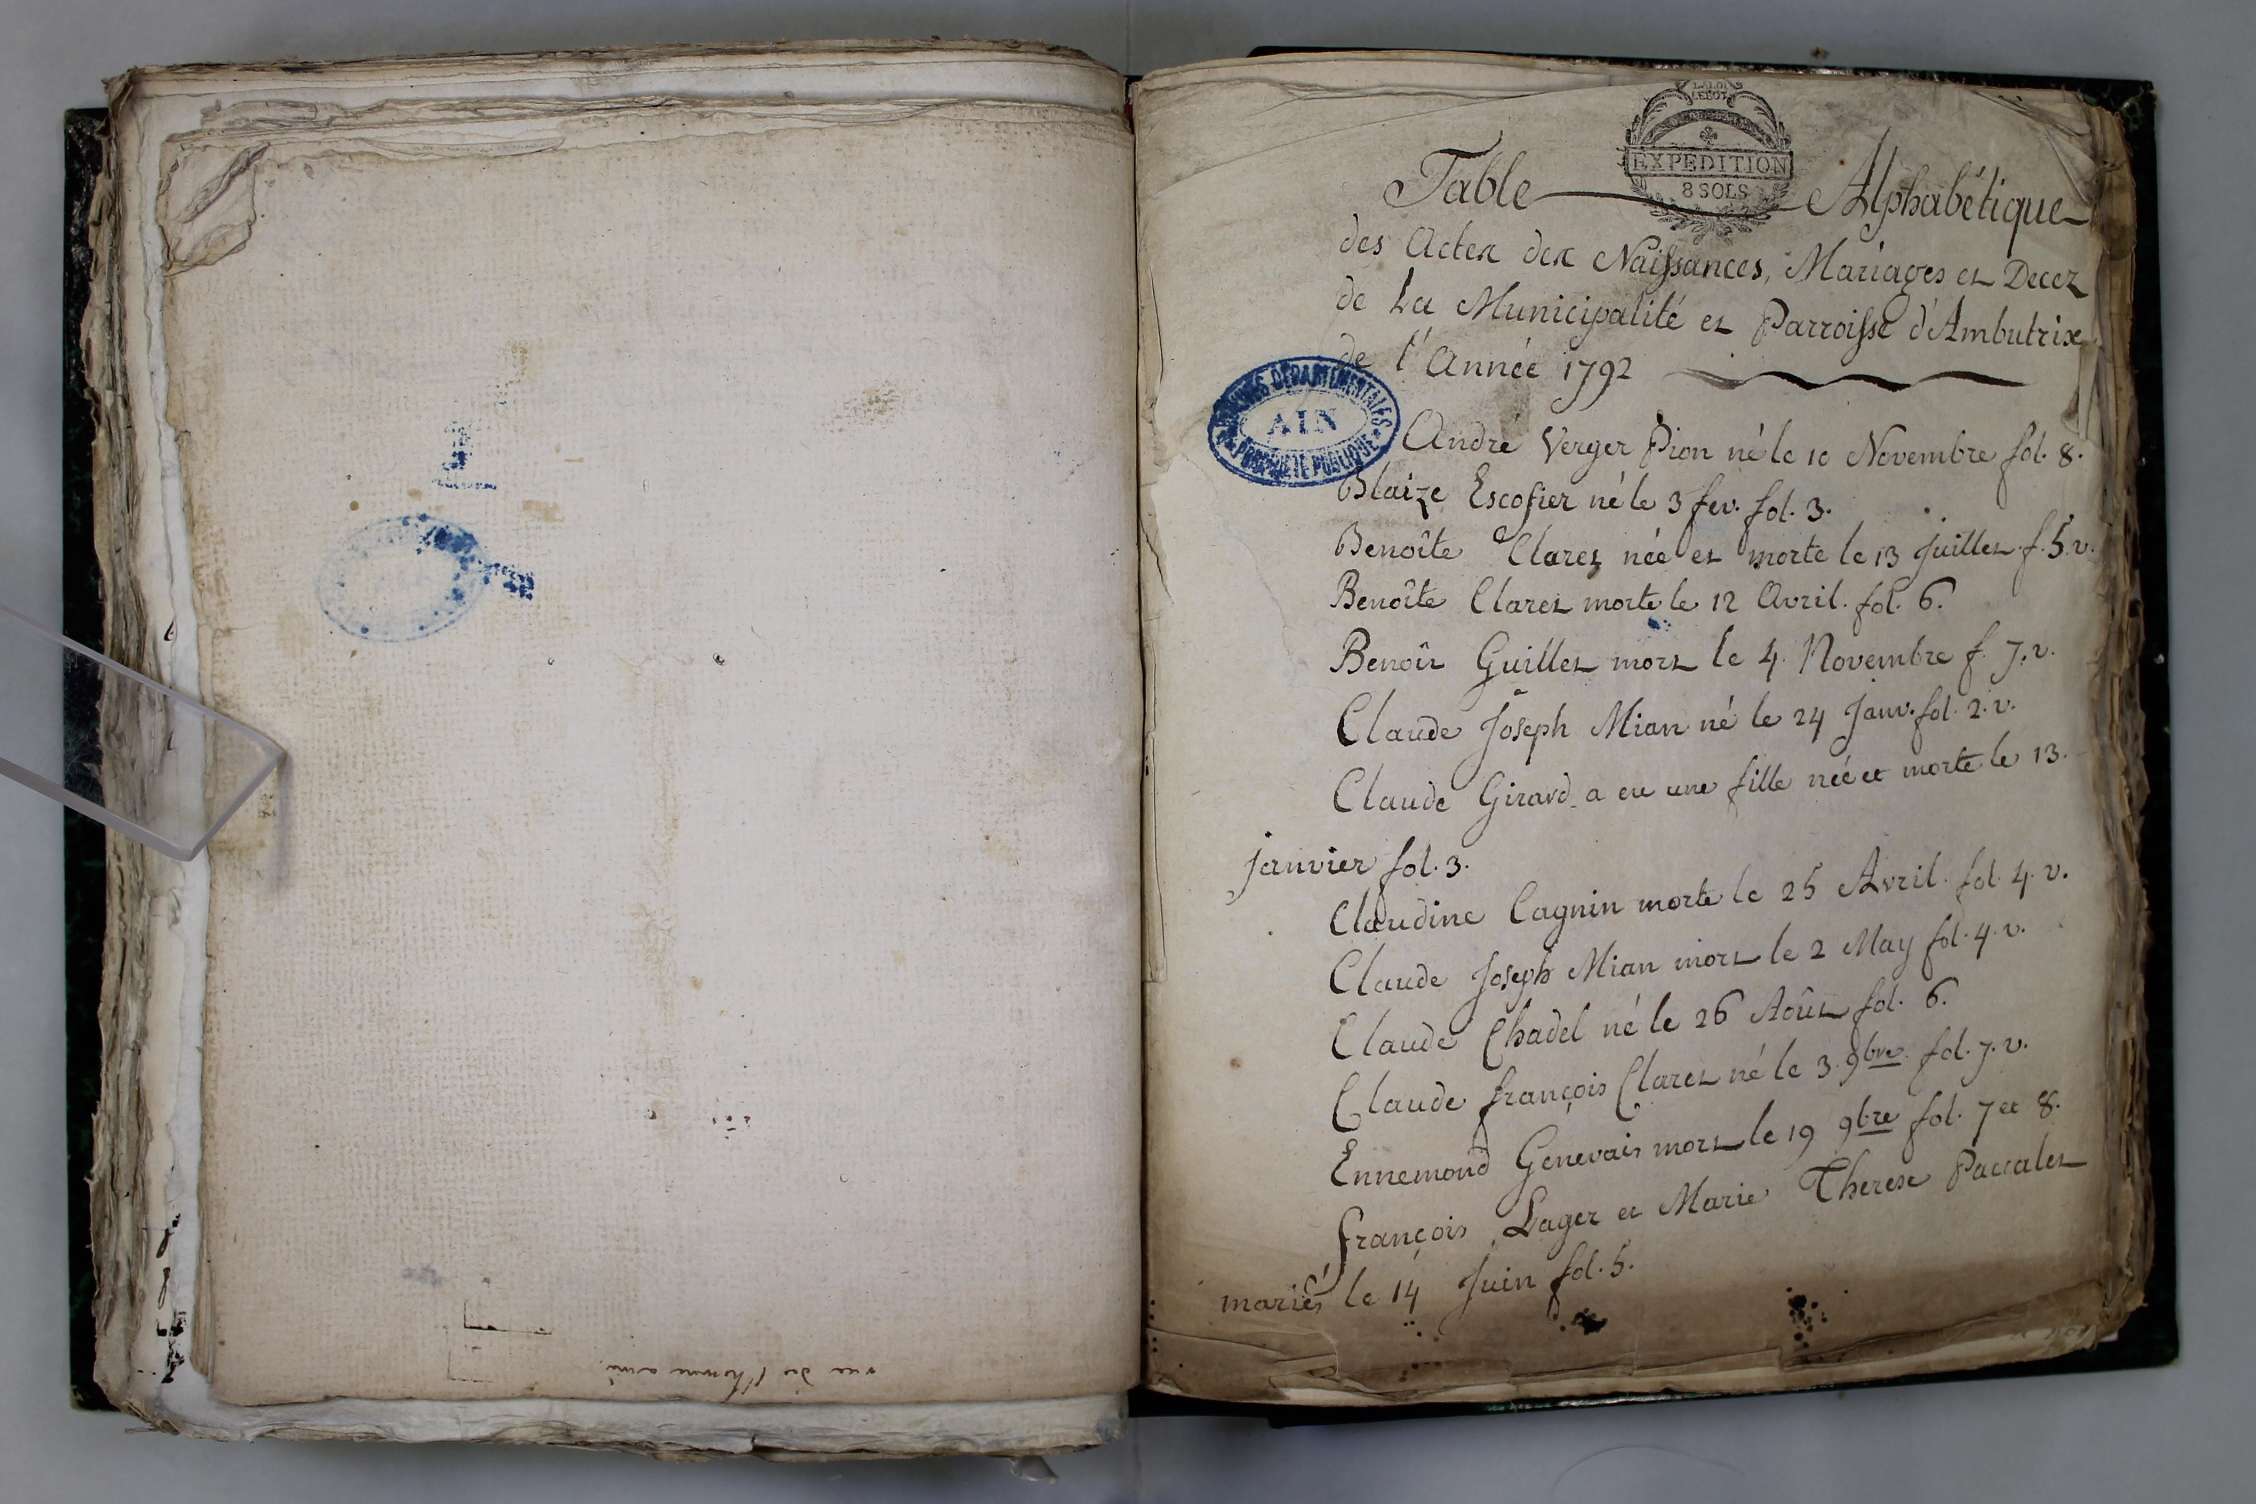 LA LOI
EXPEDITION
8 SOLS
Table Alphabétique
des Actes des Naissances, Mariages et Decez
de La Municipalité et Parroisse d'Ambutrix
de l'Année 1792
ARCHIVES DÉPARTEMENTALES
AIN
PROPRIÉTÉ PUBLIQUE
André Verger Pion né le 10 Novembre fol. 8.
Blaize Escofier né le 3 fev. fol. 3.
Benoîte Claret née et morte le 13 Juillet f. 5. v.
Benoîte Claret morte le 12 Avril. fol. 6.
Benoît Guillet mort le 4 Novembre f. 7. v.
Claude Joseph Mian né le 24 Janv. fol. 2. v.
Claude Girard a eu une fille née et morte le 13.
janvier fol. 3.
Claudine Cagnin morte le 25 Avril. fol. 4. v.
Claude Joseph Mian mort le 2 May fol. 4. v.
Claude Chadel né le 26 Aôut fol. 6.
Claude françois Claret né le 3. 9bre fol. 7. v.
Ennemond Genevais mort le 19 9bre fol. 7 et 8.
françois Lager et Marie Therese Paccalet
mariés le 14 Juin fol. 5.